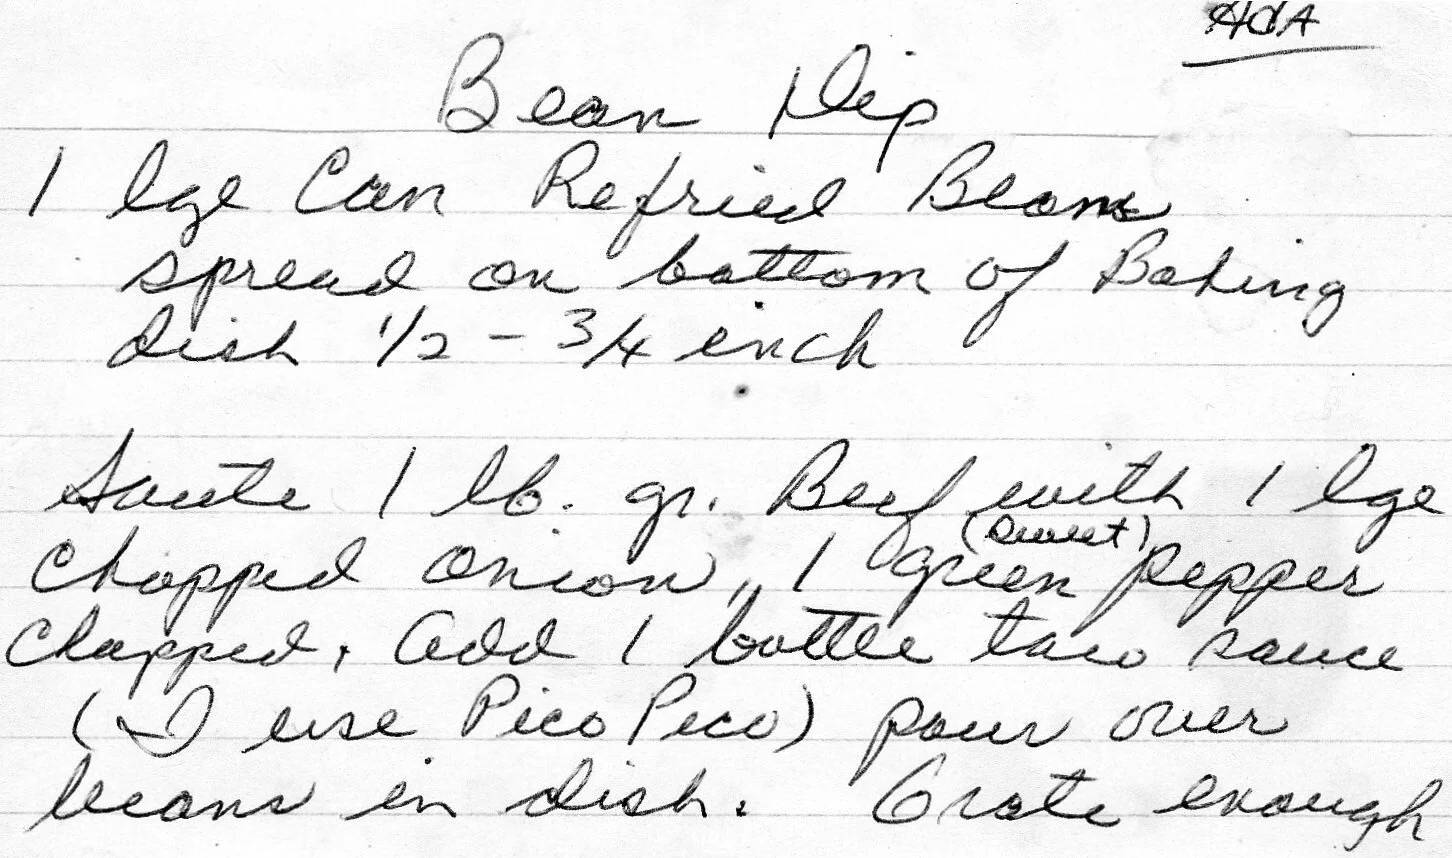 AdA
Bean Dip
1 lge Can Refried Beans
spread on bottom of Baking
dish 1/2 - 3/4 inch
Saute 1 lb. gr. Beef with 1 lge
(sweet)
chopped onion, 1 green pepper
chopped. Add 1 bottle taco sauce
(I use Pico Pico) pour over
beans in dish. Grate enough